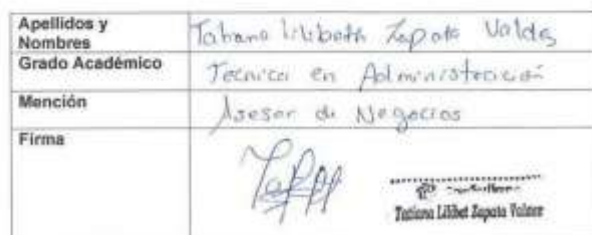 Apellidos y Nombres
Tatiana Lilibeth Zapata Valdez
Grado Académico
Tecnica en Administración
Mención
Asesor de Negocios
Firma
Tatiana Lilibet Zapata Valdez